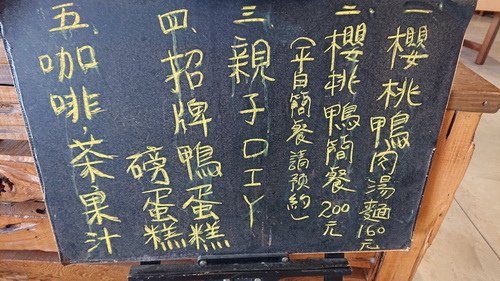 一 櫻桃鴨肉湯麵160元
二、櫻桃鴨簡餐200元
(平日簡餐請預約)
三 親子DIY
四、招牌鴨蛋糕
磅蛋糕
五、咖啡,茶,果汁